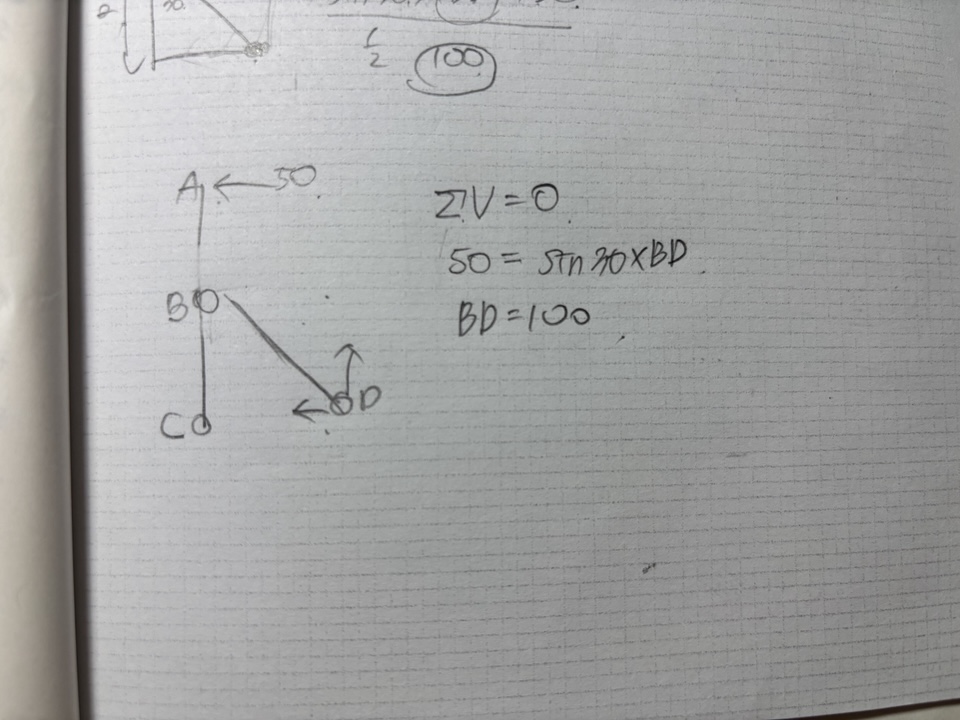 2
30.
1
2
100
A ← 50
ΣV = 0
50 = sin 30 × BD
B
BD = 100
D
C